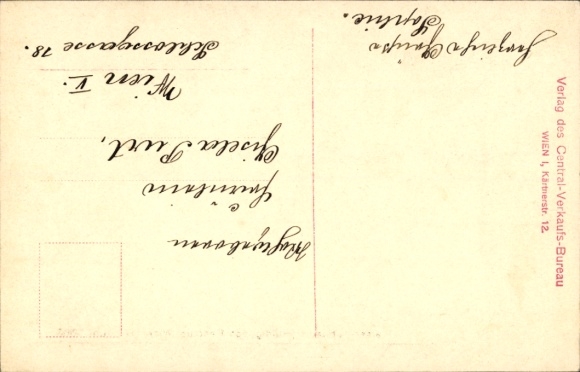 Herzliche Grüße
Sophie.
Wohlgeboren
Fräulein
Gisela Purt,
Wien V.
Schlossgasse 18.
Verlag des Central-Verkaufs-Bureau
WIEN I, Kärtnerstr. 12.